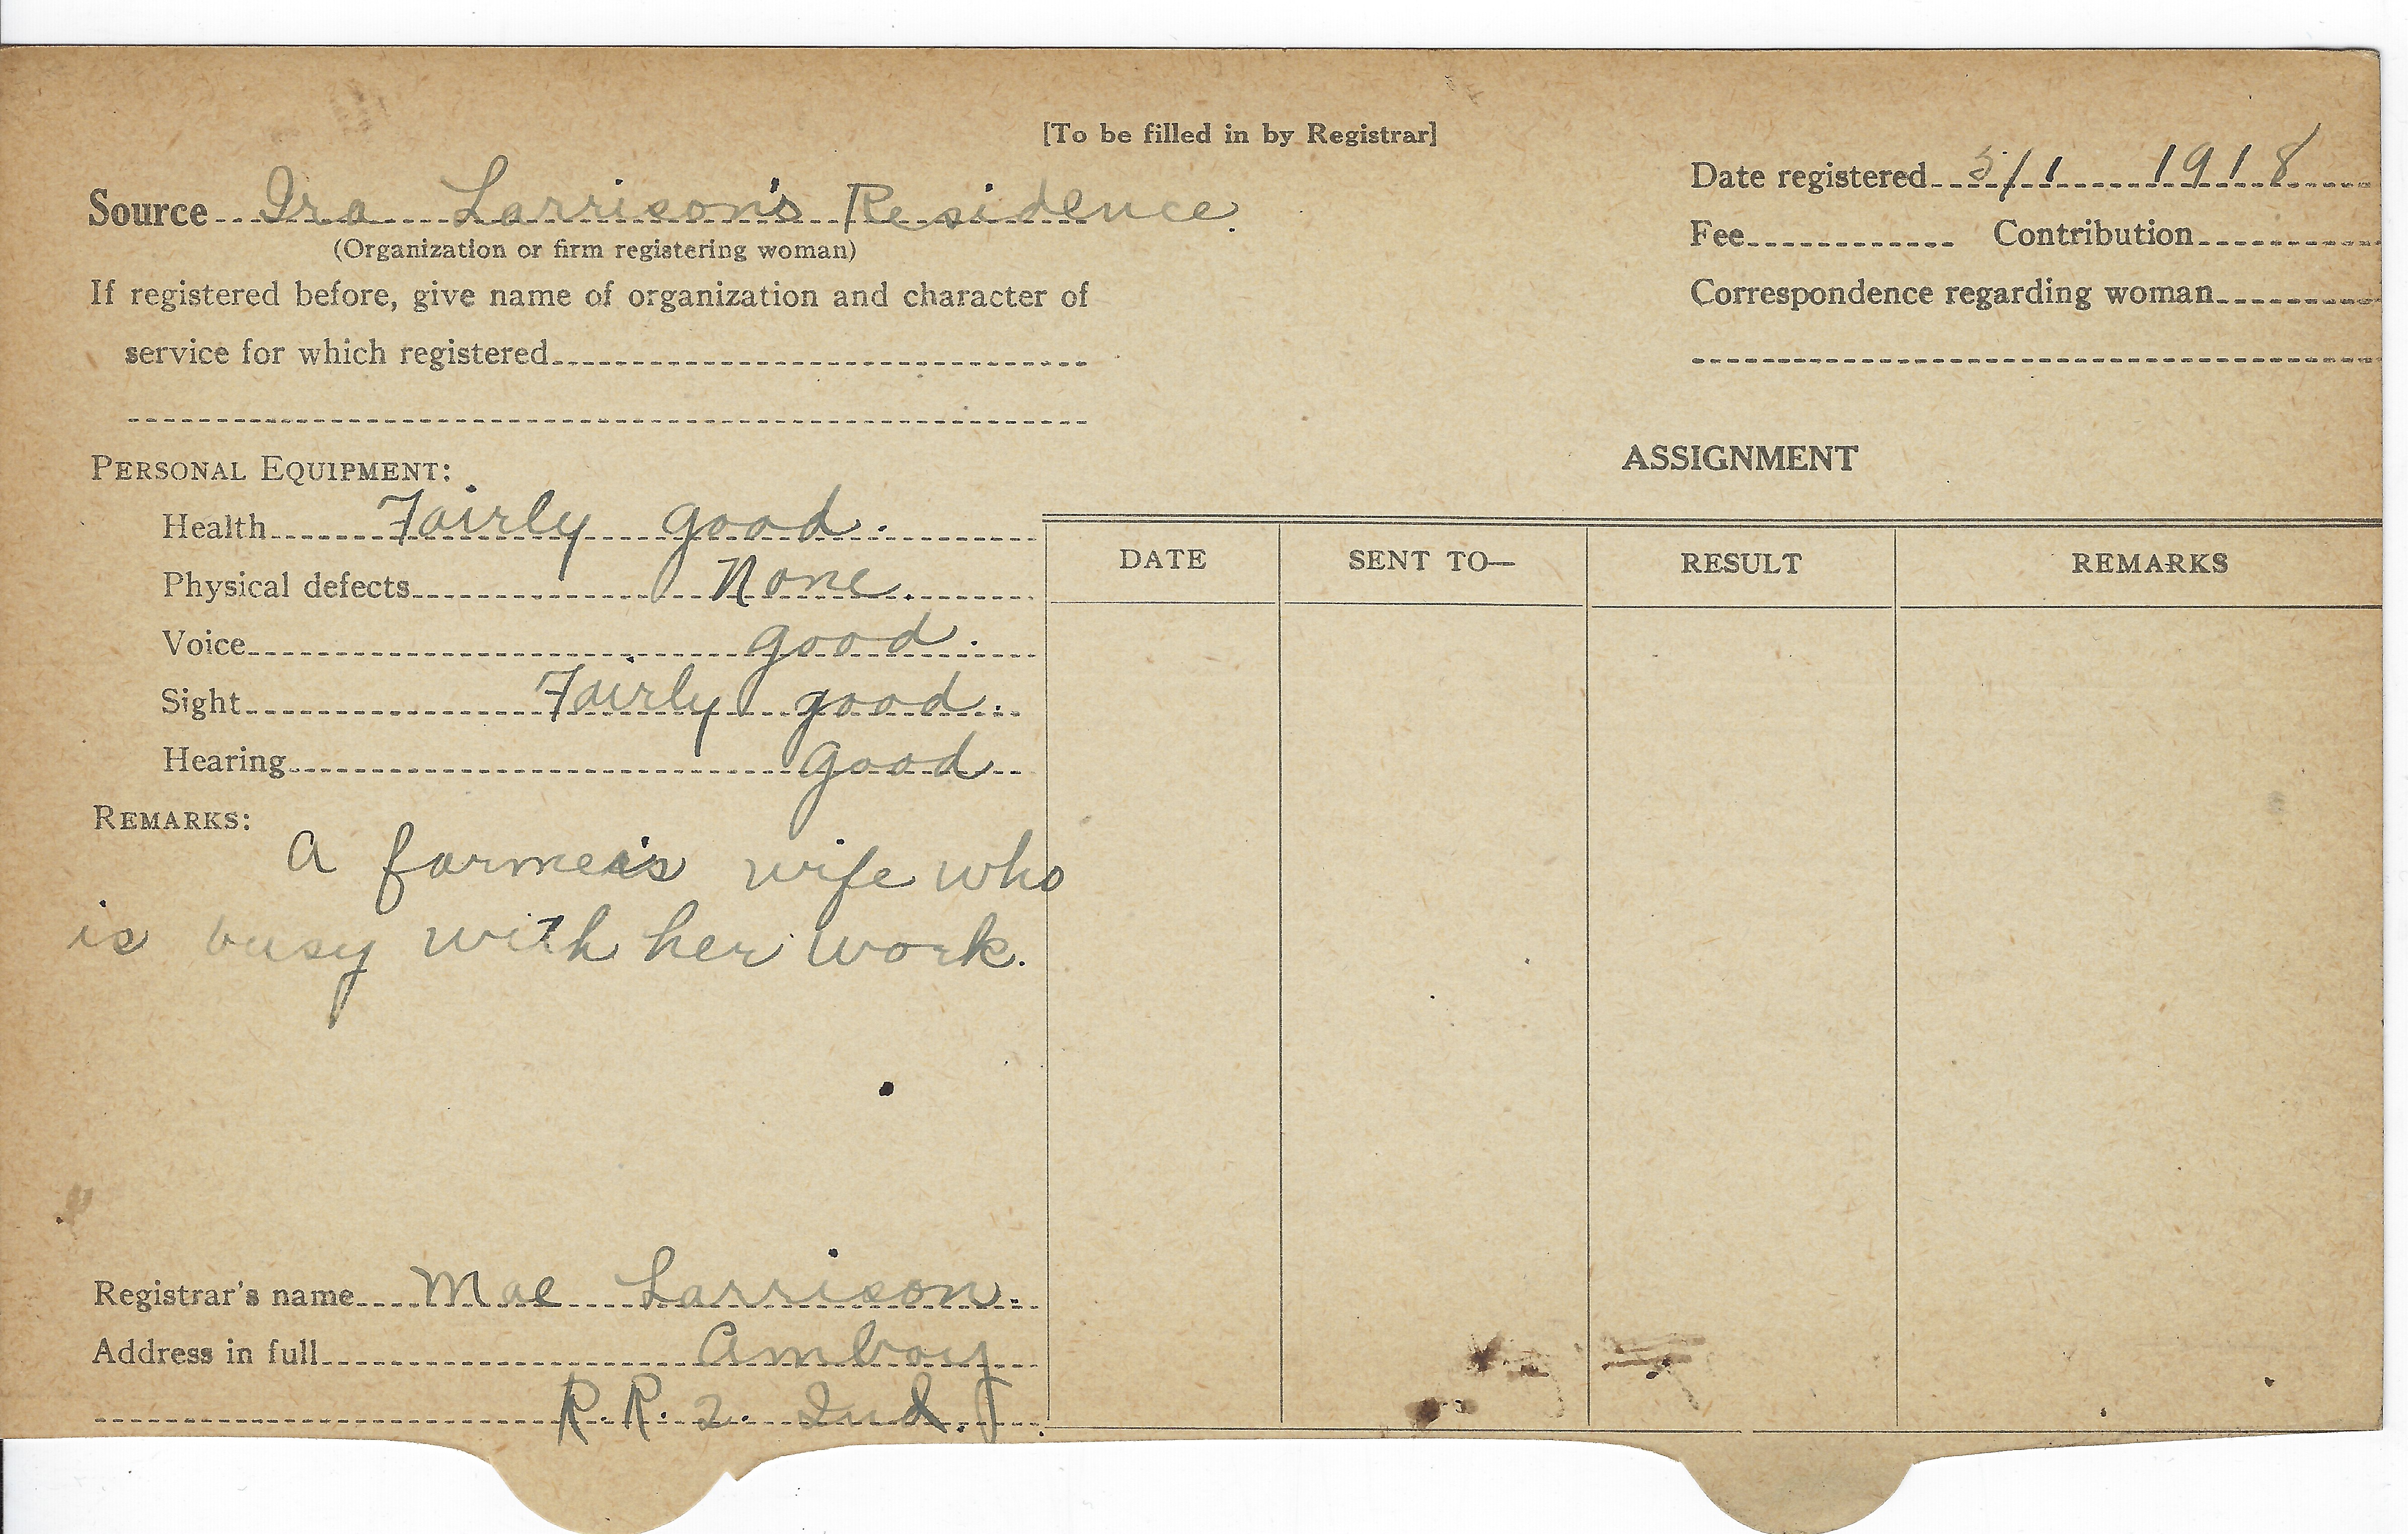 [To be filled in by Registrar]
Date registered 5/1 1918
Source Ira Larrison's Residence.
Fee Contribution
(Organization or firm registering woman)
If registered before, give name of organization and character of
Correspondence regarding woman
service for which registered
ASSIGNMENT
PERSONAL EQUIPMENT:
Health Fairly good.
DATE SENT TO— RESULT REMARKS
Physical defects None.
Voice good.
Sight Fairly good.
Hearing Good
REMARKS:
A farmer's wife who
is busy with her work.
Registrar's name Mae Larrison.
Address in full Amboy
R.R. 2. Ind.